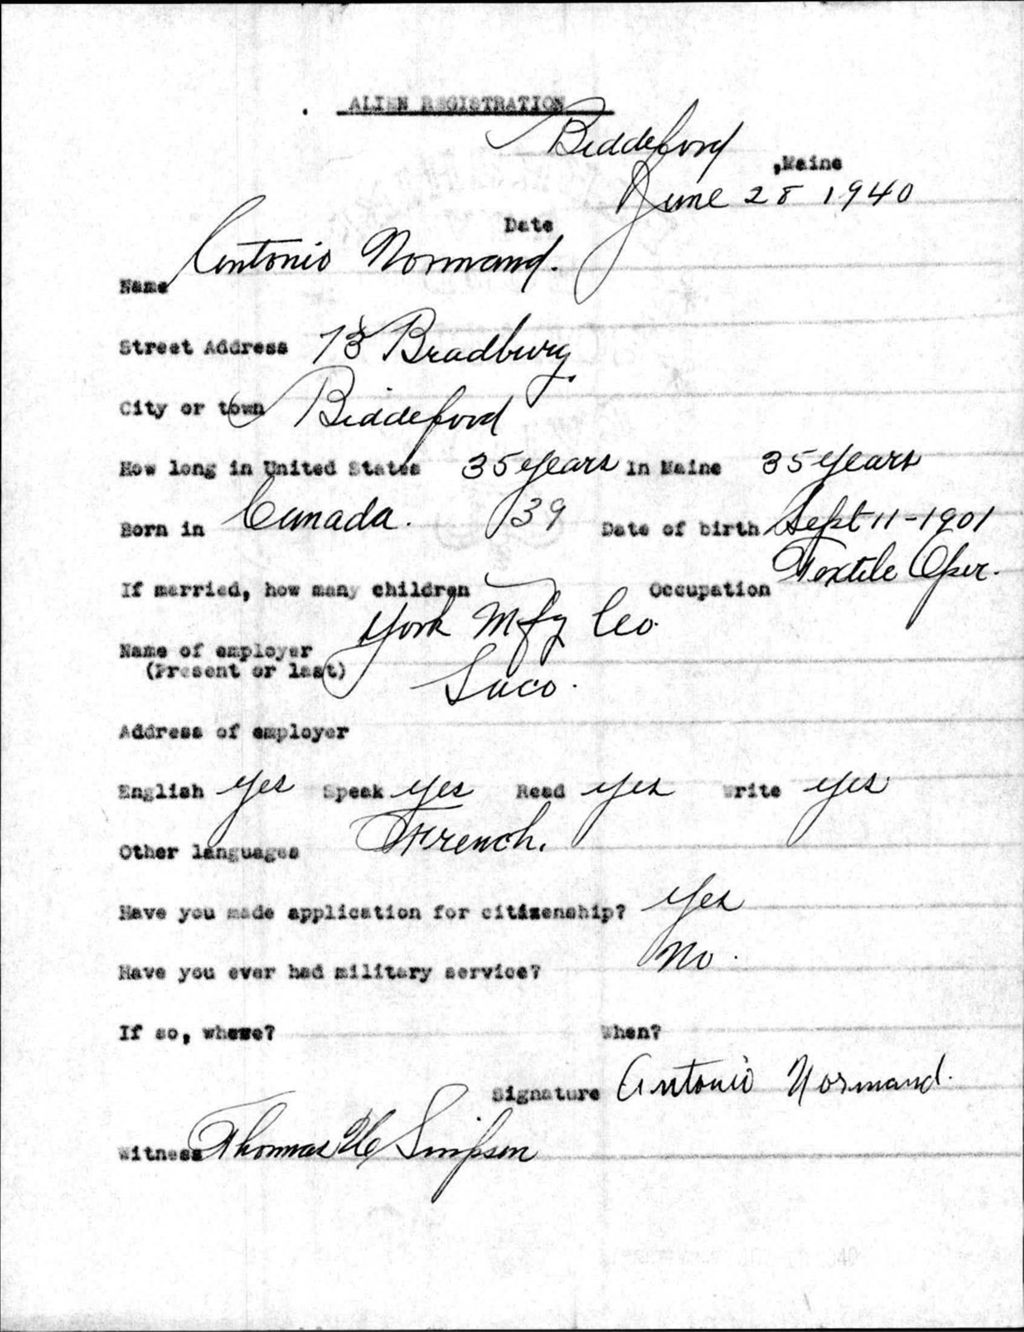 ALIEN REGISTRATION
Biddeford, Maine
Date June 28 1940
Name Antonio Normand.
Street Address 73 Bradbury
City or town Biddeford
How long in United States 35 years In Maine 35 years
Born in Canada. 39 Date of birth Sept 11-1901
If married, how many children Occupation Textile Oper.
Name of employer York Mfg Co
(Present or last) Saco.
Address of employer
English yes Speak yes Read yes Write yes
Other languages French.
Have you made application for citizenship? Yes
Have you ever had military service? No.
If so, where? When?
Signature Antonio Normand.
Witness Thomas H Simpson